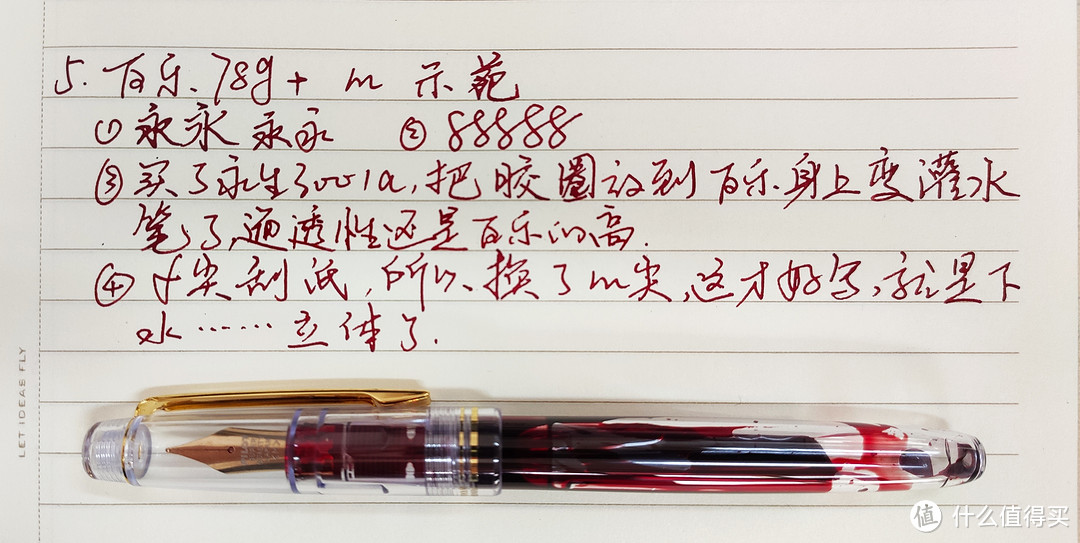 5. 百乐.78g+ m 示范
① 永永永永 ② 88888
③ 买了永生3001a,把胶圈放到百乐身上变灌水
笔了,通透性还是百乐的高.
④ f尖刮纸,所以,换了m尖,这才好写,就是下
水……立体了.
LET IDEAS FLY
值 什么值得买